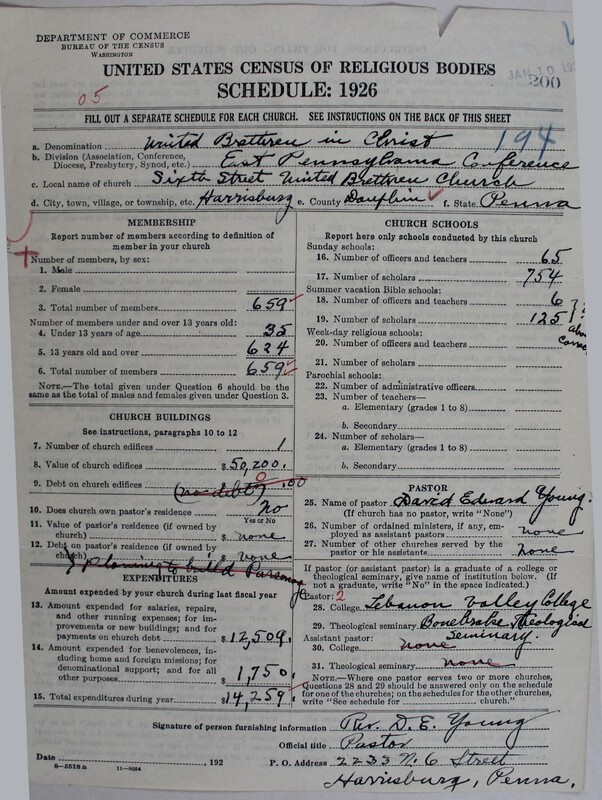 DEPARTMENT OF COMMERCE
BUREAU OF THE CENSUS
WASHINGTON
UNITED STATES CENSUS OF RELIGIOUS BODIES
SCHEDULE: 1926
05
200
FILL OUT A SEPARATE SCHEDULE FOR EACH CHURCH. SEE INSTRUCTIONS ON THE BACK OF THIS SHEET
194
a. Denomination United Brethren in Christ
b. Division (Association, Conference, Diocese, Presbytery, Synod, etc.) East Pennsylvania Conference
c. Local name of church Sixth Street United Brethren Church
d. City, town, village, or township, etc. Harrisburg e. County Dauphin f. State Penna
MEMBERSHIP
Report number of members according to definition of
member in your church
Number of members, by sex:
1. Male
2. Female
3. Total number of members 659
Number of members under and over 13 years old:
4. Under 13 years of age 35
5. 13 years old and over 624
6. Total number of members 659
NOTE.—The total given under Question 6 should be
same as the total of males and females given under Question 3.
CHURCH BUILDINGS
See instructions, paragraphs 10 to 12
7. Number of church edifices 1
8. Value of church edifices $50,200.
9. Debt on church edifices $ 0.00
(no debt)
10. Does church own pastor's residence? No
Yes or No
11. Value of pastor's residence (if owned by
church) $ none
12. Debt on pastor's residence (if owned by
church) $ none
planning to build Parsonage
EXPENDITURES
Amount expended by your church during last fiscal year
13. Amount expended for salaries, repairs,
and other running expenses; for im-
provements or new buildings; and for
payments on church debt $12,509.
14. Amount expended for benevolences,
including home and foreign missions; for
denominational support; and for all
other purposes 1,750.
15. Total expenditures during year $14,259.
CHURCH SCHOOLS
Report here only schools conducted by this church
Sunday schools:
16. Number of officers and teachers 65
17. Number of scholars 754
Summer vacation Bible schools:
18. Number of officers and teachers 6
19. Number of scholars 125
Week-day religious schools:
20. Number of officers and teachers
21. Number of scholars
Parochial schools:
22. Number of administrative officers
23. Number of teachers—
a. Elementary (grades 1 to 8)
b. Secondary
24. Number of scholars—
a. Elementary (grades 1 to 8)
b. Secondary
PASTOR
25. Name of pastor David Edward Young.
(If church has no pastor, write "None")
26. Number of ordained ministers, if any, em-
ployed as assistant pastors none
27. Number of other churches served by the
pastor or his assistants none
If pastor (or assistant pastor) is a graduate of a college or
theological seminary, give name of institution below. (If
not a graduate, write "No" in the space indicated.)
Pastor: 2
28. College Lebanon Valley College
29. Theological seminary Bonebrake Theological
Seminary.
Assistant pastor:
30. College none
31. Theological seminary none
NOTE.—Where one pastor serves two or more churches,
Questions 28 and 29 should be answered only on the schedule
for one of the churches; on the schedules for the other churches,
write "See schedule for church."
Signature of person furnishing information Rev. D. E. Young
Official title Pastor
Date , 192
P. O. Address 2233 N. 6 Street
8—5518a 11—9084
Harrisburg, Penna.